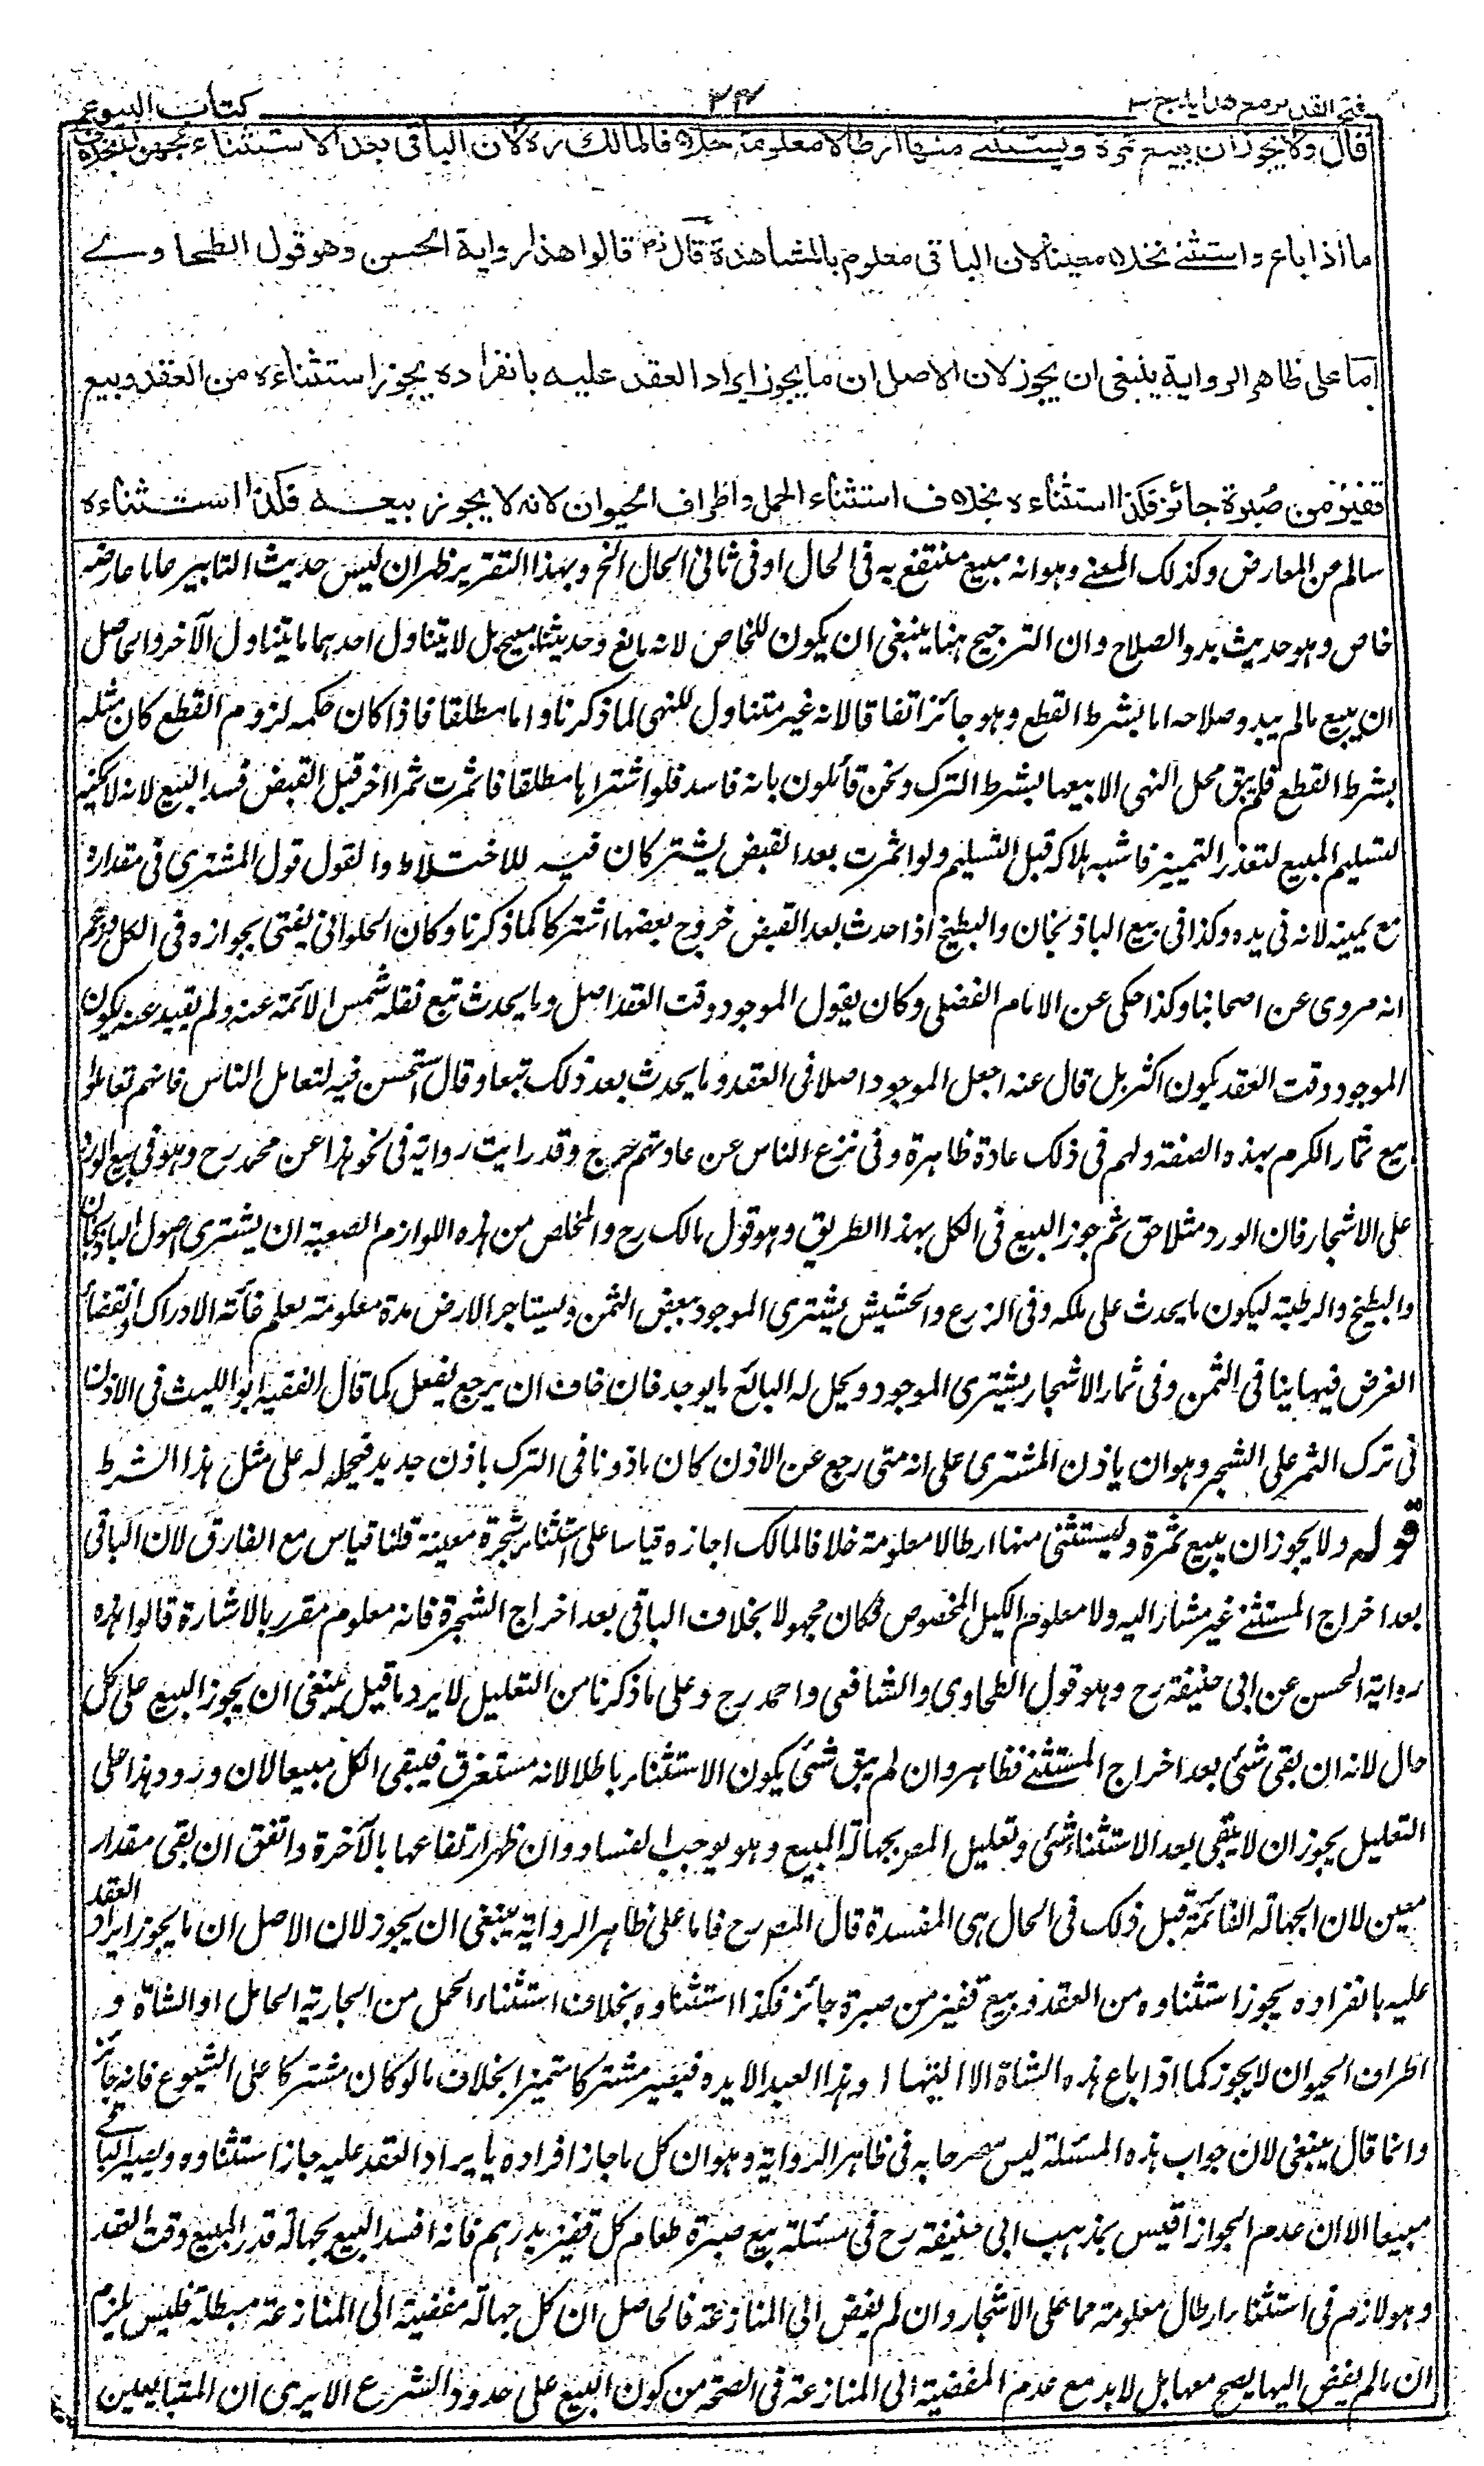 فتح القدير مع هدايه ج ٣
٢٣
كتاب البيوع
قال ولا يجوز ان يبيع ثمرة ويستثنى منها ارطالا معلومة خلافا لمالك ره لان الباقى بعد الاستثناء مجهول بخلاف
ما اذا باع واستثنى نخلا معينا لان الباقى معلوم بالمشاهدة قال رض قالوا هذا رواية الحسن وهو قول الطحاوي
اما على ظاهر الرواية ينبغى ان يجوز لان الاصل ان ما يجوز ايراد العقد عليه بانفراده يجوز استثناءه من العقد وبيع
قفيز من صبرة جائز فكذا استثناءه بخلاف استثناء الحمل واطراف الحيوان لانه لا يجوز بيعه فكذا استثناءه
سالم من المعارض وكذلك المعنى وهو انه مبيع منتفع به فى الحال او فى ثانى الحال الخ وبهذا التقرير ظهر ان ليس حديث التابير عاما عارضه
خاص وهو حديث بدو الصلاح وان الترجيح هنا ينبغى ان يكون للخاص لانه مانع وحديثنا مبيح بل لا يتناول احدهما ما يتناول الآخر والحاصل
ان بيع ما لم يبد وصلاحه اما بشرط القطع وهو جائز اتفاقا لانه غير متناول للنهى لما ذكرنا واما مطلقا فاذا كان حكمه لزوم القطع كان مثله
بشرط القطع فلم يبق محل النهى الا بيعها بشرط الترك ونحن قائلون بانه فاسد فلو اشتراها مطلقا فاثمرت ثمرا اخر قبل القبض فسد البيع لانه لا يمكنه
تسليم المبيع لتعذر التمييز فاشبه هلاكه قبل التسليم ولو اثمرت بعد القبض يشتركان فيه للاختلاط والقول قول المشترى فى مقداره
مع يمينه لانه فى يده وكذا فى بيع الباذنجان والبطيخ اذا حدث بعد القبض خروج بعضها اشتركا كما ذكرنا وكان الحلوانى يفتى بجوازه فى الكل وزعم
انه مروى عن اصحابنا وكذا حكى عن الامام الفضلى وكان يقول الموجود وقت العقد اصل وما يحدث تبع نقله شمس الائمة عنه ولم يقيد عنه بكون
الموجود وقت العقد يكون اكثر بل قال عنه اجعل الموجود اصلا فى العقد وما يحدث بعد ذلك تبعا وقال استحسن فيه لتعامل الناس فانهم تعاملوا
بيع ثمار الكرم بهذه الصفة ولهم فى ذلك عادة ظاهرة وفى نزع الناس عن عادتهم حرج وقد رايت رواية فى نحو هذا عن محمد رح وهو فى بيع الورد
على الاشجار فان الورد متلاحق ثم جوز البيع فى الكل بهذا الطريق وهو قول مالك رح والمخلص من هذه اللوازم الصعبة ان يشترى اصول الباذنجان
والبطيخ والرطبة ليكون ما يحدث على ملكه وفى الزرع والحشيش يشترى الموجود ببعض الثمن ويستاجر الارض مدة معلومة يعلم غاية الادراك وانقضاء
الغرض فيها بباقى الثمن وفى ثمار الاشجار يشترى الموجود ويحل له البائع ما يوجد فان خاف ان يرجع يفعل كما قال الفقيه ابو الليث فى الاذن
فى ترك الثمر على الشجر وهو ان ياذن المشترى على انه متى رجع عن الاذن كان ماذونا فى الترك باذن جديد فيحل له على مثل هذا الشرط
قوله ولا يجوز ان يبيع ثمرة ويستثنى منها ارطالا معلومة خلافا لمالك اجازه قياسا على استثناء شجرة معينة قلنا قياس مع الفارق لان الباقى
بعد اخراج المستثنى غير مشار اليه ولا معلوم الكيل المخصوص فكان مجهولا بخلاف الباقى بعد اخراج الشجرة فانه معلوم مقرر بالاشارة قالوا هذه
رواية الحسن عن ابى حنيفة رح وهو قول الطحاوى والشافعى واحمد رح وعلى ما ذكرنا من التعليل لا يرد ما قيل ينبغى ان يجوز البيع على كل
حال لانه ان بقى شئ بعد اخراج المستثنى فظاهر وان لم يبق شئ يكون الاستثناء باطلا لانه مستغرق فيبقى الكل مبيعا لان ورود هذا على
التعليل بجوز ان لا يبقى بعد الاستثناء شئ وتعليل المصر بجهالة المبيع وهو يوجب الفساد وان ظهر ارتفاعها بالآخرة واتفق ان بقى مقدار
معين لان الجهالة القائمة قبل ذلك فى الحال هى المفسدة قال المصر رح فاما على ظاهر الرواية ينبغى ان يجوز لان الاصل ان ما يجوز ايراد العقد
عليه بانفراده يجوز استثناوه من العقد وبيع قفيز من صبرة جائز فكذا استثناوه بخلاف استثناء الحمل من الجارية الحامل او الشاة و
اطراف الحيوان لا يجوز كما اذا باع هذه الشاة الا اليتها او هذا العبد الا يده فيصير مشتركا متميزا بخلاف ما لو كان مشتركا على الشيوع فانه جائز
وانما قال ينبغى لان جواب هذه المسئلة ليس مصرحا به فى ظاهر الرواية وهو ان كل ما جاز افراده بايراد العقد عليه جاز استثناوه ويصير الباقى
مبيعا الا ان عدم الجواز اقيس بمذهب ابى حنيفة رح فى مسئلة بيع صبرة طعام كل قفيز بدرهم فانه افسد البيع بجهالة قدر المبيع وقت العقد
وهو لازم فى استثناء ارطال معلومة مما على الاشجار وان لم يفض الى المنازعة فالحاصل ان كل جهالة مفضية الى المنازعة مبطلة فليس يلزم
ان ما لم يفض اليها يصح معها بل لا بد مع عدم المفضية الى المنازعة فى الصحة من كون البيع على حدود الشرع الا يرى ان المتبايعين